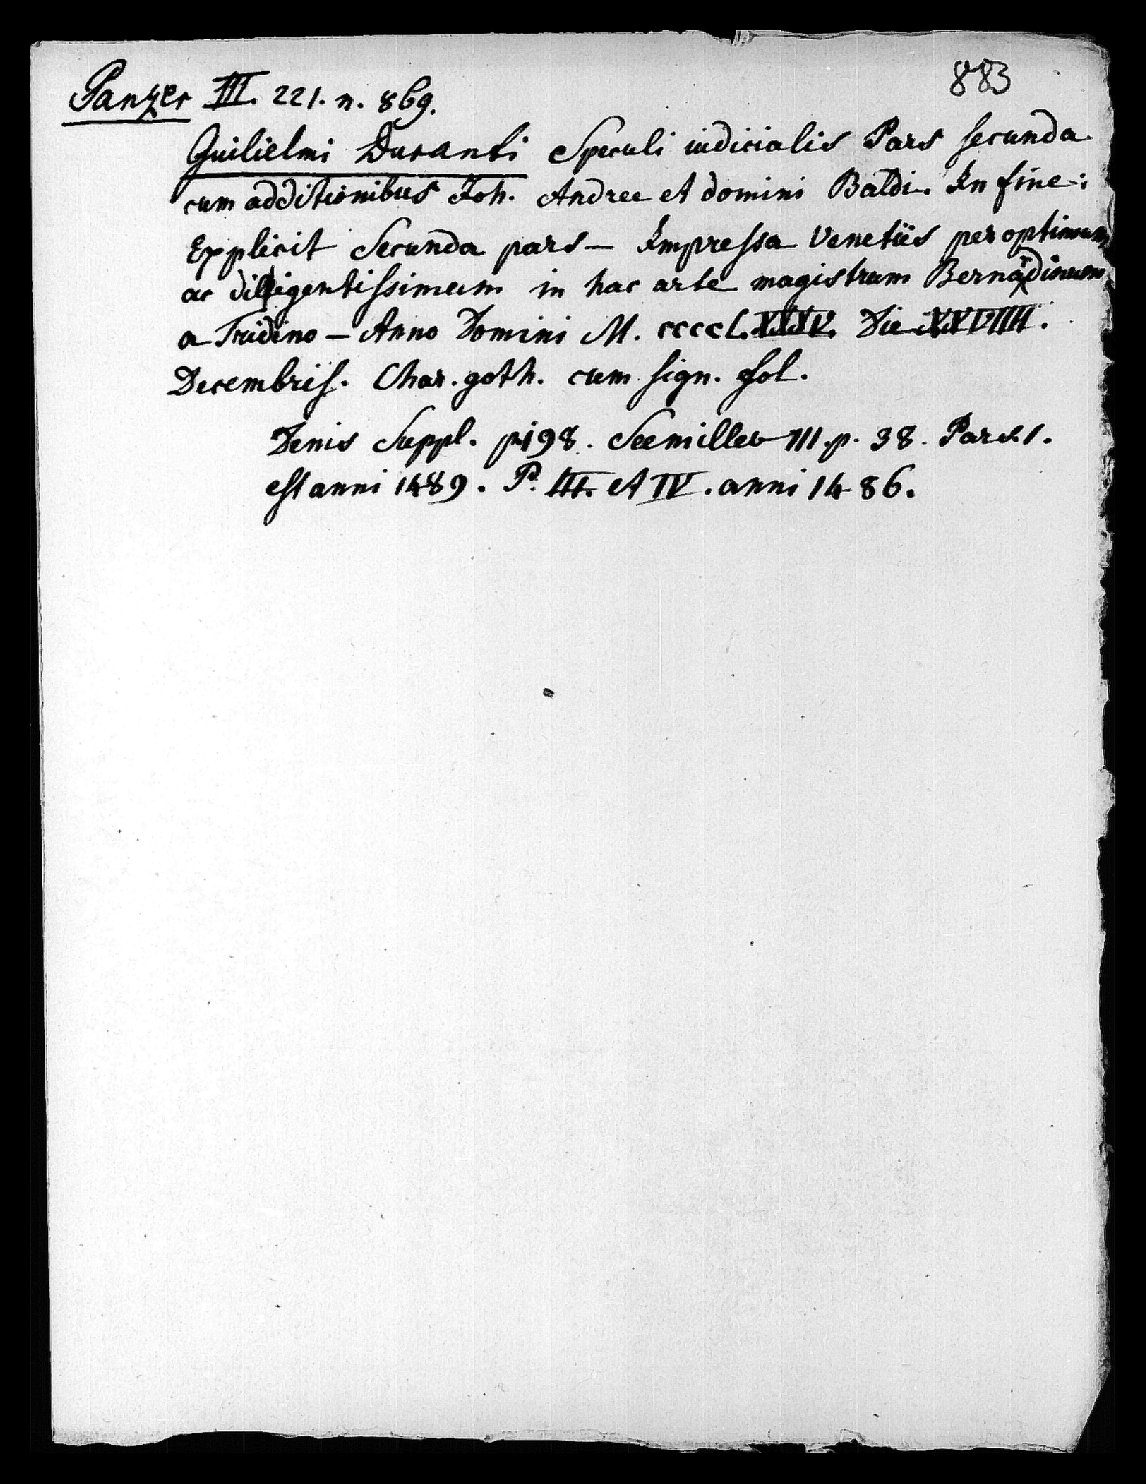 883
Panzer III. 221. n. 869.
Guilielmi Duranti Speculi iudicialis Pars secunda
cum additionibus Joh. Andree et domini Baldi. In fine:
Explicit Secunda pars — Impressa Venetiis per optimum
ac diligentissimum in hac arte magistrum Bernardinum
a Tridino — Anno Domini M. ccccLXXXV. Die XXVIIII.
Decembris. Char. goth. cum sign. fol.
Denis Suppl. p. 198. Seemiller III. p. 38. Pars. 1.
est anni 1489. P. III. et IV. anni 1486.